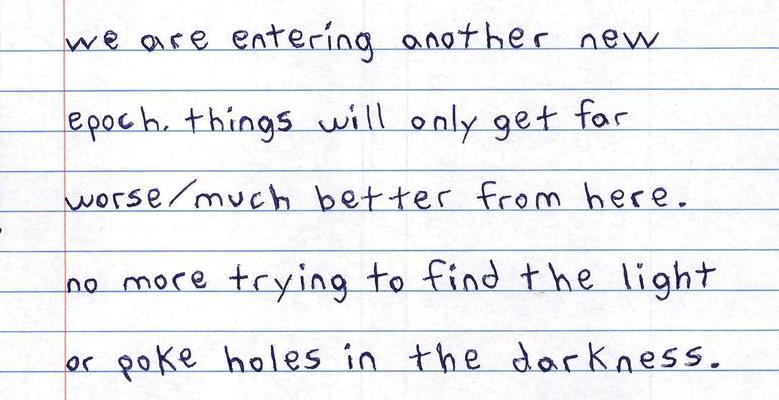 we are entering another new
epoch. things will only get far
worse/much better from here.
no more trying to find the light
or poke holes in the darkness.